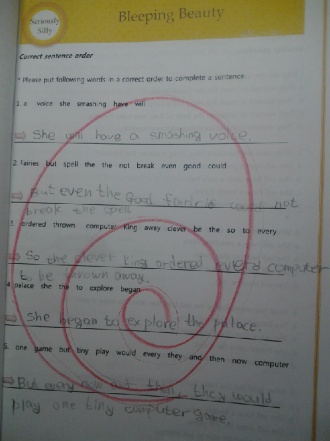 Seriously
Silly
Bleeping Beauty
Correct sentence order
* Please put following words in a correct order to complete a sentence.
1. a voice she smashing have will
⇨ She will have a smashing voice.
2. fairies but spell the the not break even good could
⇨ But even the good fairies could not
break the spell
3. ordered thrown computer King away clever be the so to every
⇨ So the clever king ordered every computer
to be thrown away.
4. palace she the to explore began
⇨ She began to explore the palace.
5. one game but tiny play would every they and then now computer
⇨ But every now and then, they would
play one tiny computer game.